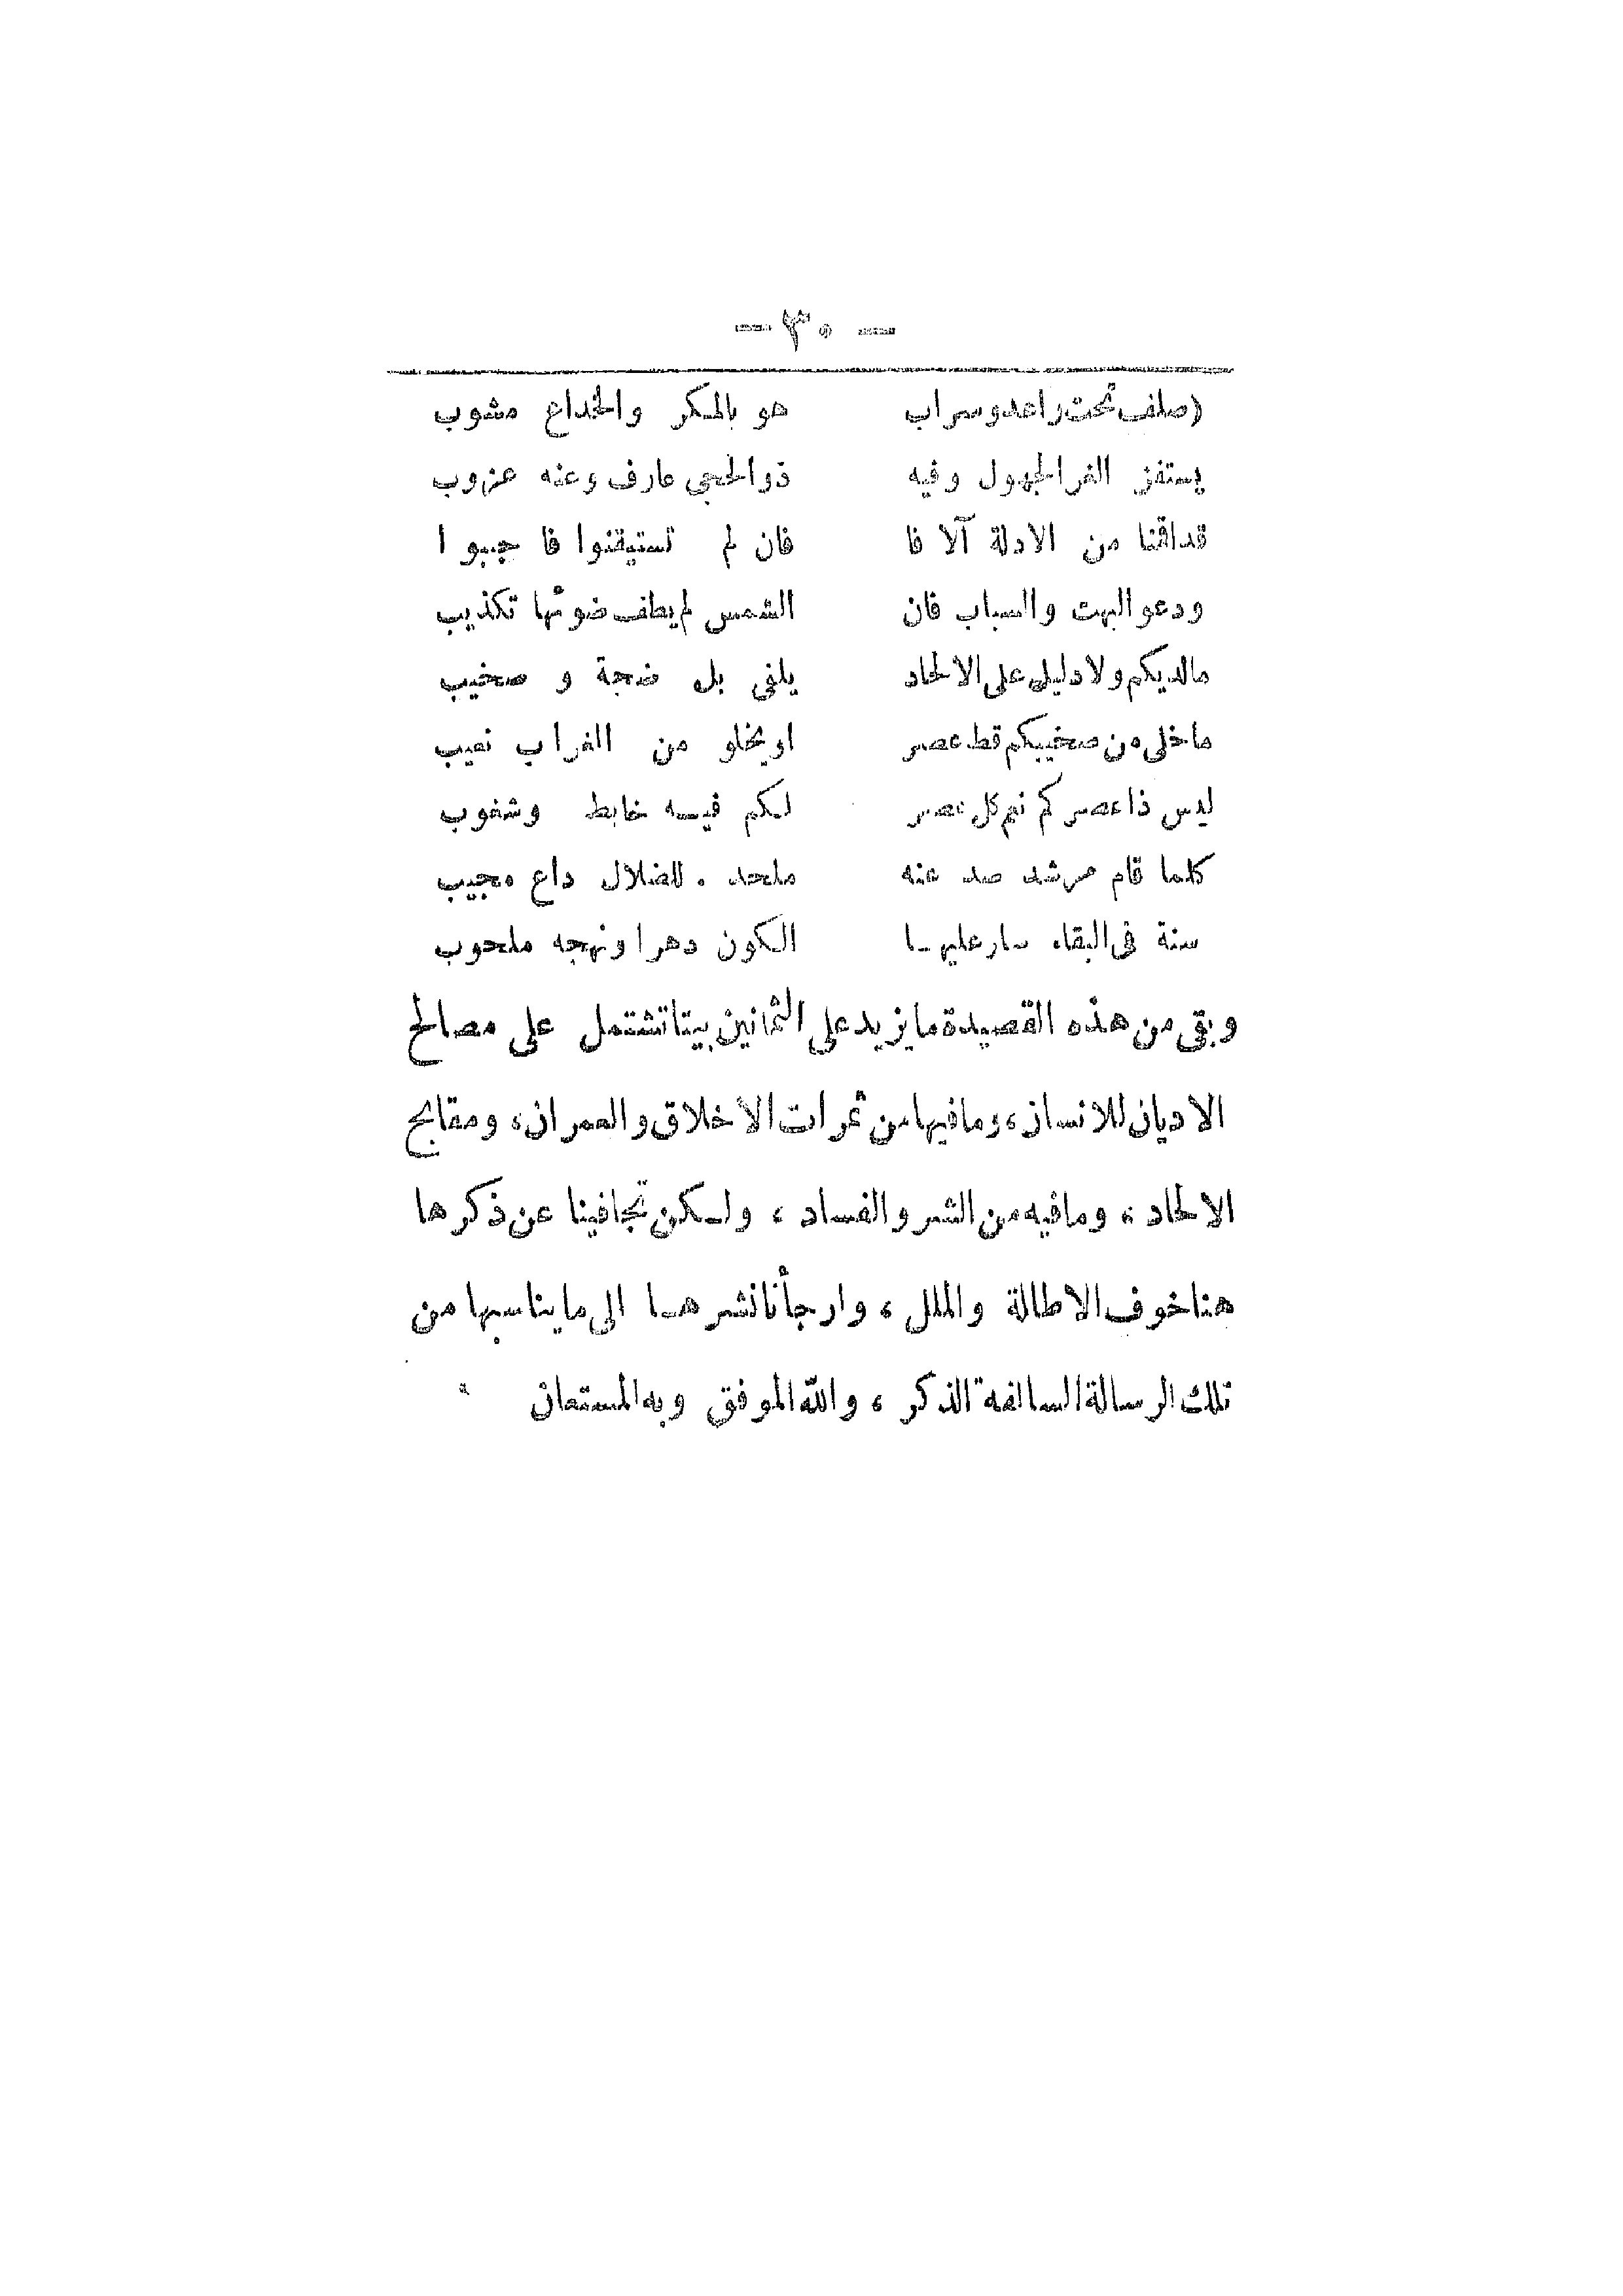 — ٣٠ —
(صلف تحت راعد وسراب هو بالمكر والخداع مشوب
يستفز الغر الجهول وفيه ذو الحجى عارف وعنه عزوب
قد اقنا من الادلة آلا فا فان لم تستيقنوا فا جيبو ا
ودعو البهت والسباب فان الشمس لم يطف ضوئها تكذيب
ما لديكم ولا دليل على الالحاد يلفى بل ضجة و صخيب
ما خلى من صخيبكم قط عصر او يخلو من الغراب نعيب
ليس ذا عصر كم نعم كل عصر لكم فيه خابط وشغوب
كلما قام مرشد صد عنه ملحد . للضلال داع مجيب
سنة فى البقاء سار عليها الكون دهرا ونهجه ملحوب
وبقى من هذه القصيدة ما يزيد على الثمانين بيتا تشتمل على مصالح
الاديان للانسان، وما فيها من ثمرات الاخلاق والعمران، ومقابح
الالحاد، وما فيه من الشر والفساد، ولكن تجافينا عن ذكرها
هنا خوف الاطالة والملل، وارجأنا نشرها الى ما يناسبها من
تلك الرسالة السالفة الذكر، والله الموفق وبه المستعان